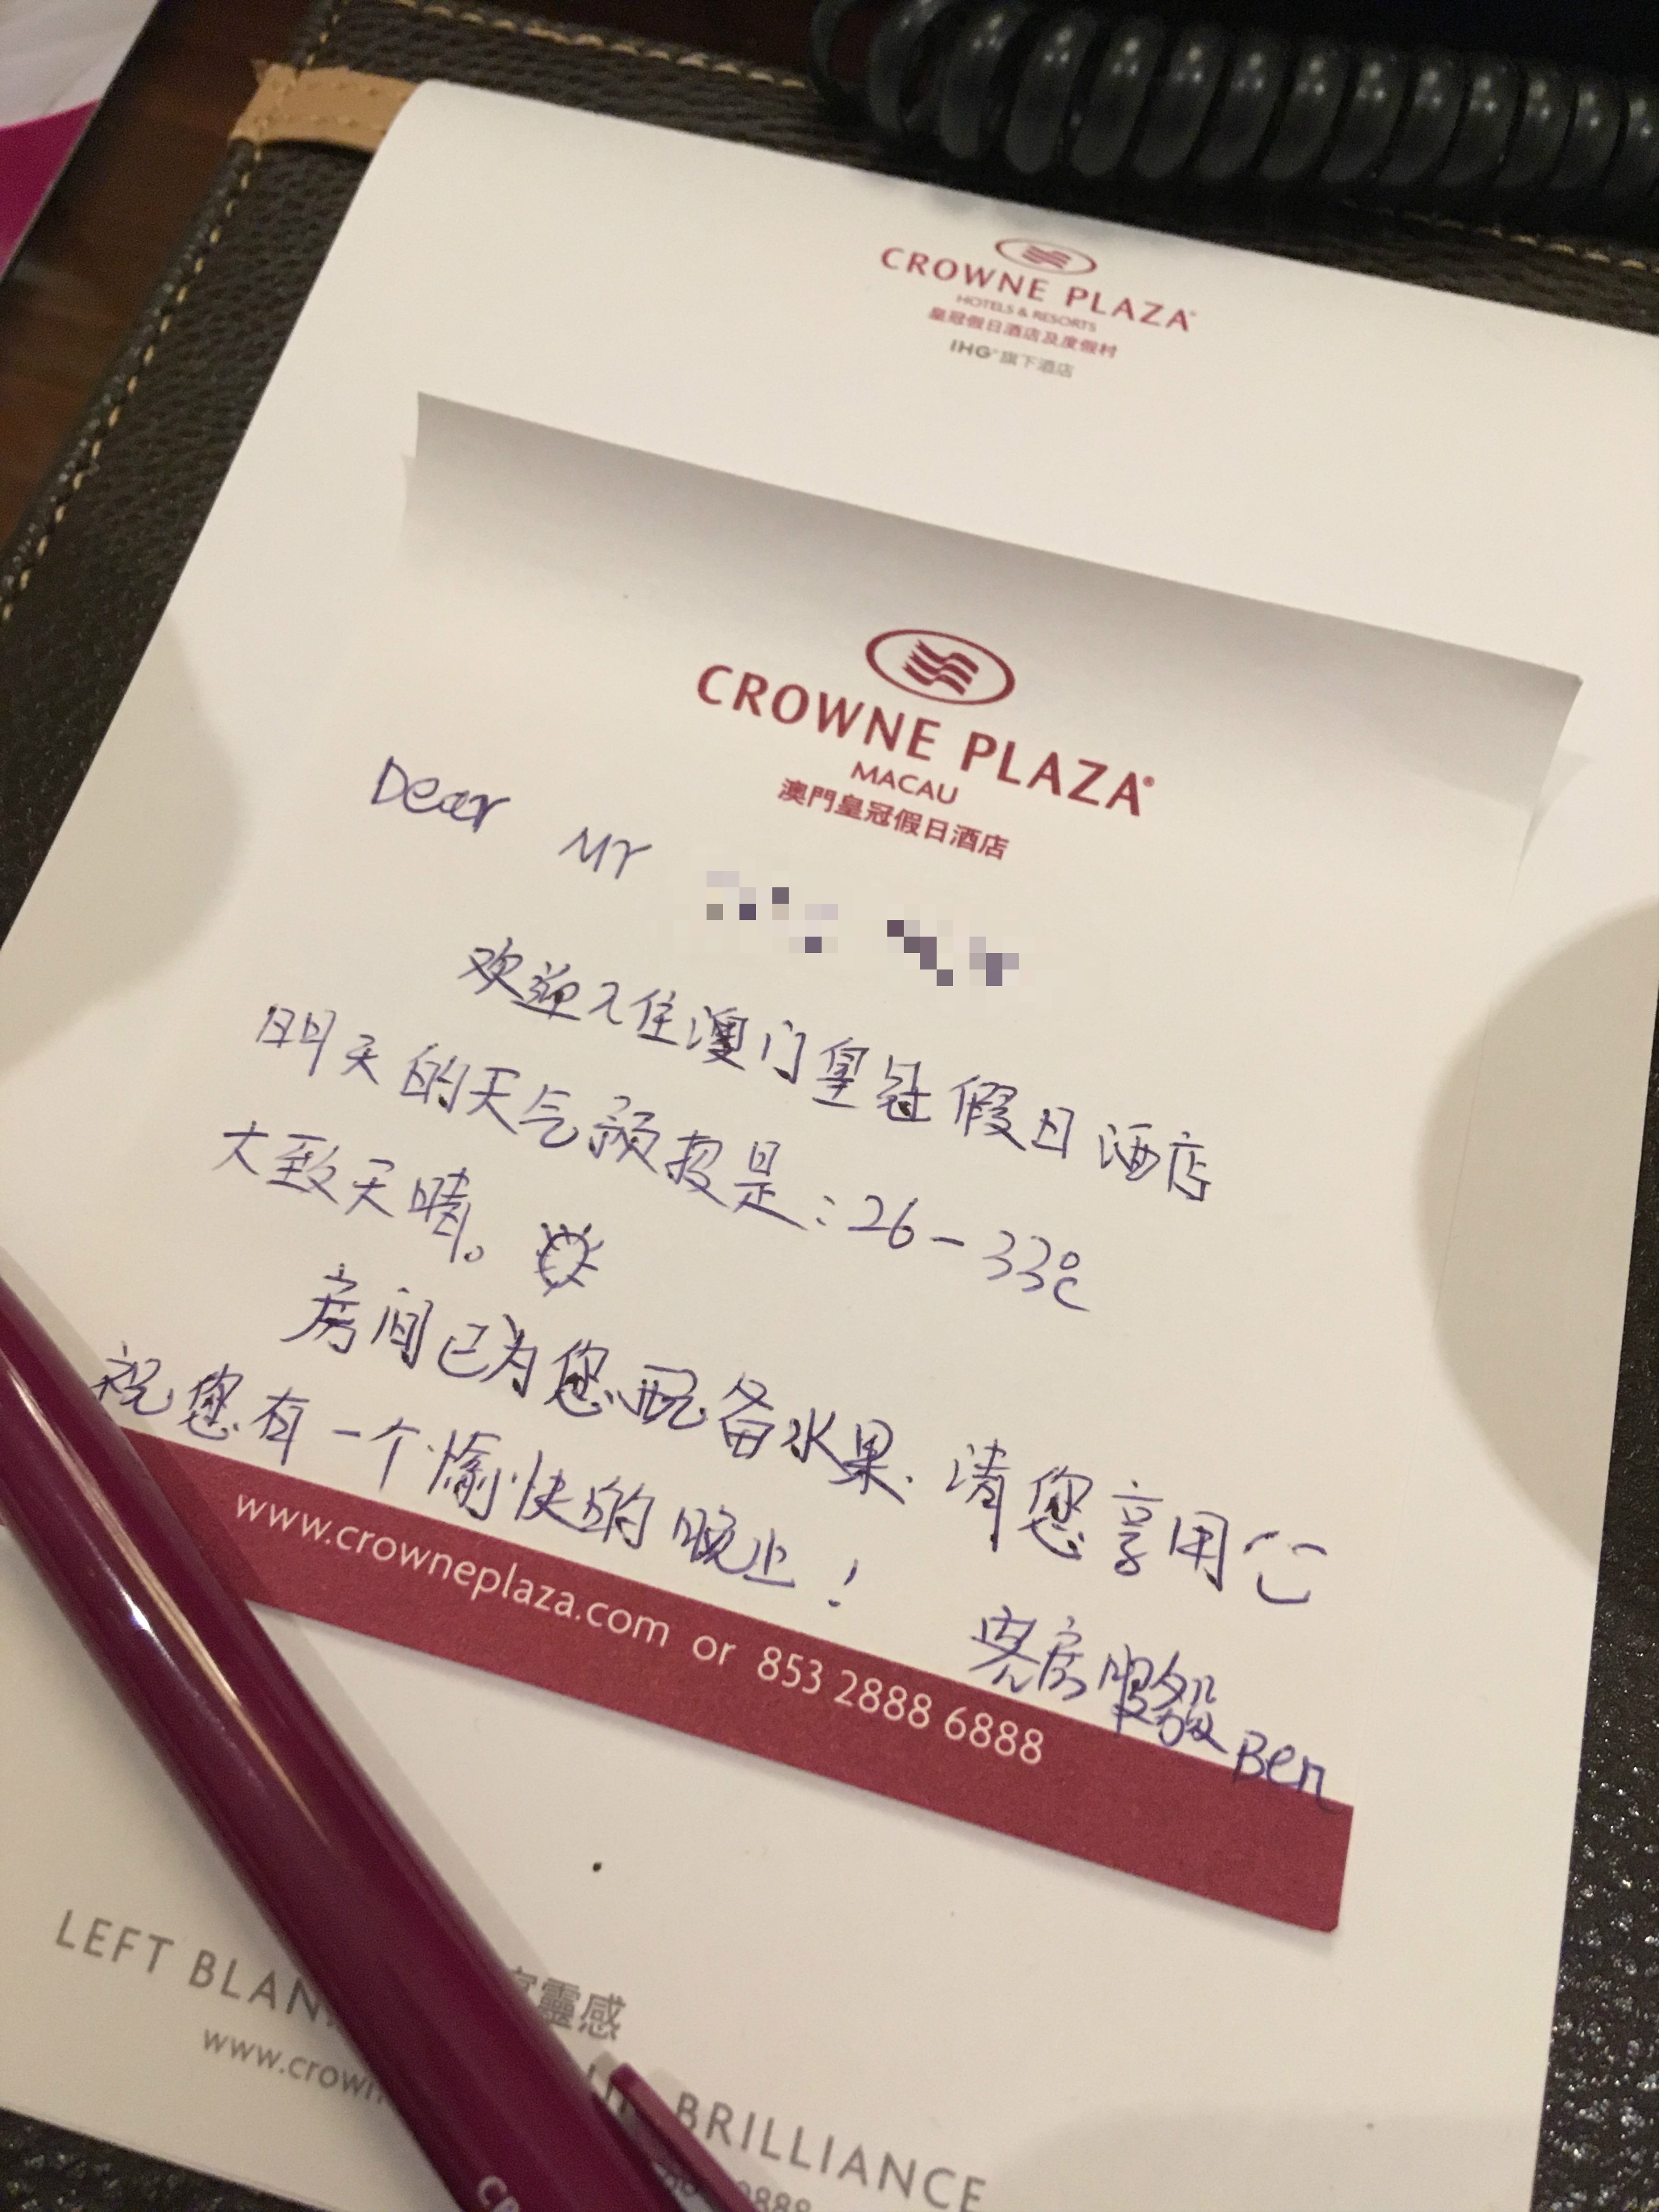 CROWNE PLAZA®
HOTELS & RESORTS
皇冠假日酒店及度假村
IHG® 旗下酒店
CROWNE PLAZA®
MACAU
澳門皇冠假日酒店
Dear Mr
欢迎入住澳门皇冠假日酒店
明天的天气预报是：26-33℃
大致天晴。
房间已为您配备水果.请您享用
祝您有一个愉快的晚上！
客房服务
Ben
www.crowneplaza.com or 853 2888 6888
LEFT BLAN
靈感
BRILLIANCE
www.crown